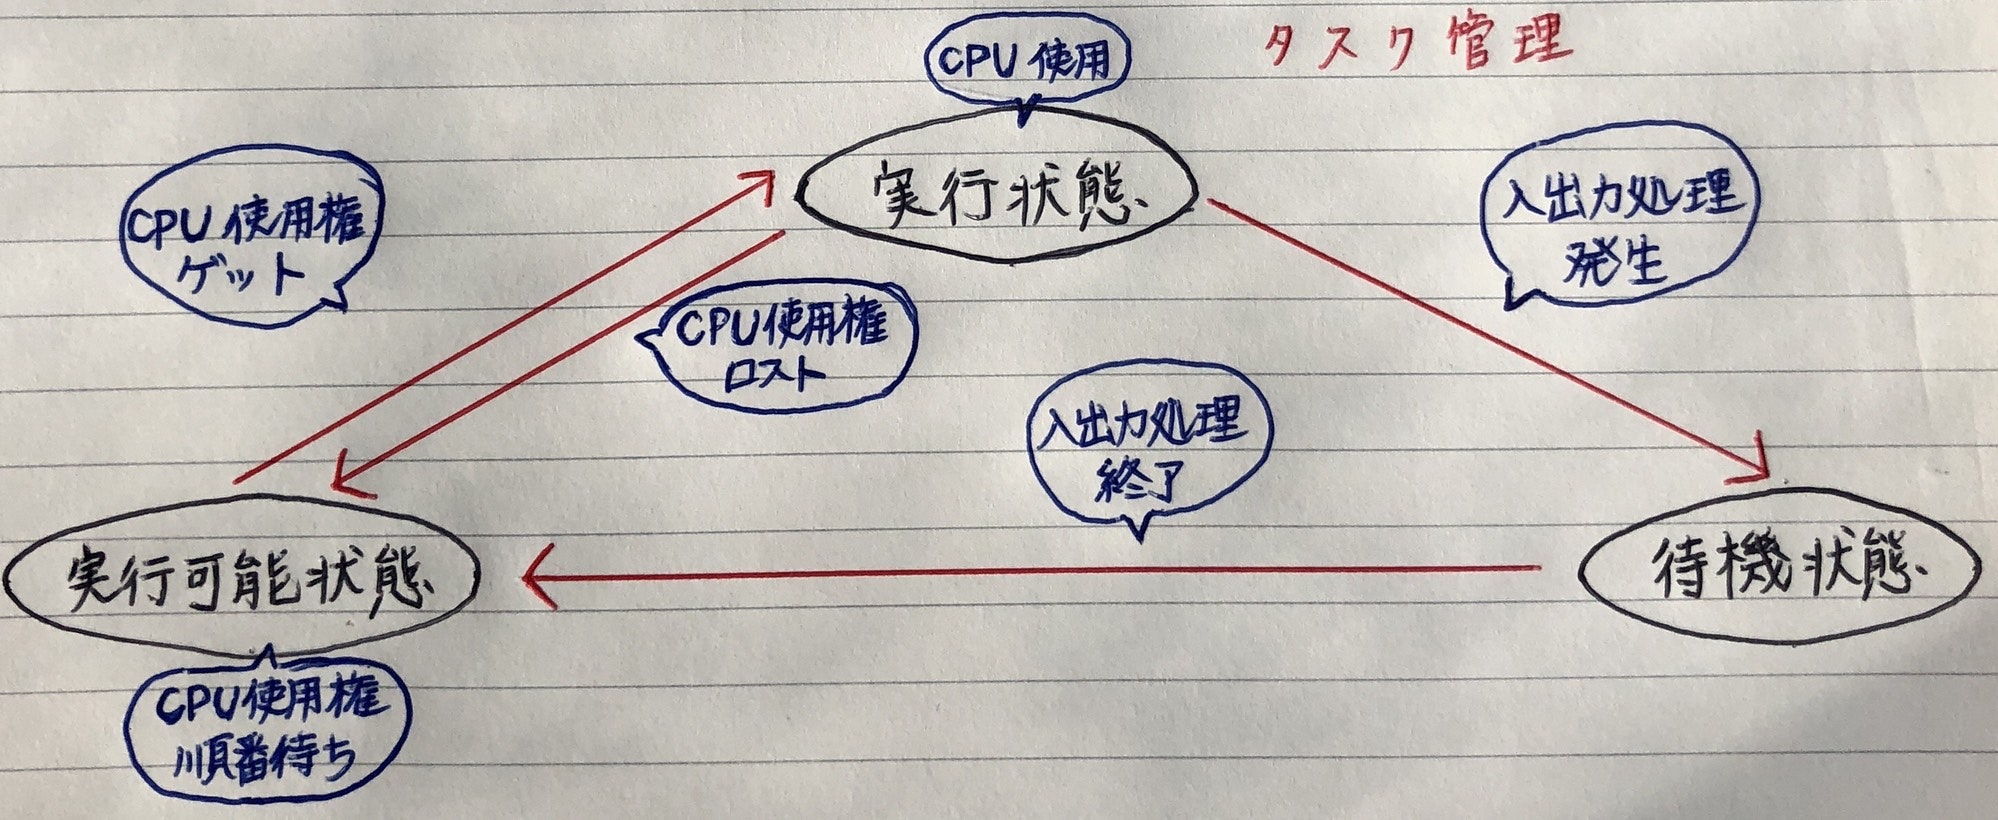 タスク管理
CPU 使用
実行状態
CPU 使用権
ゲット
入出力処理
発生
CPU使用権
ロスト
入出力処理
終了
実行可能状態
待機状態
CPU使用権
順番待ち